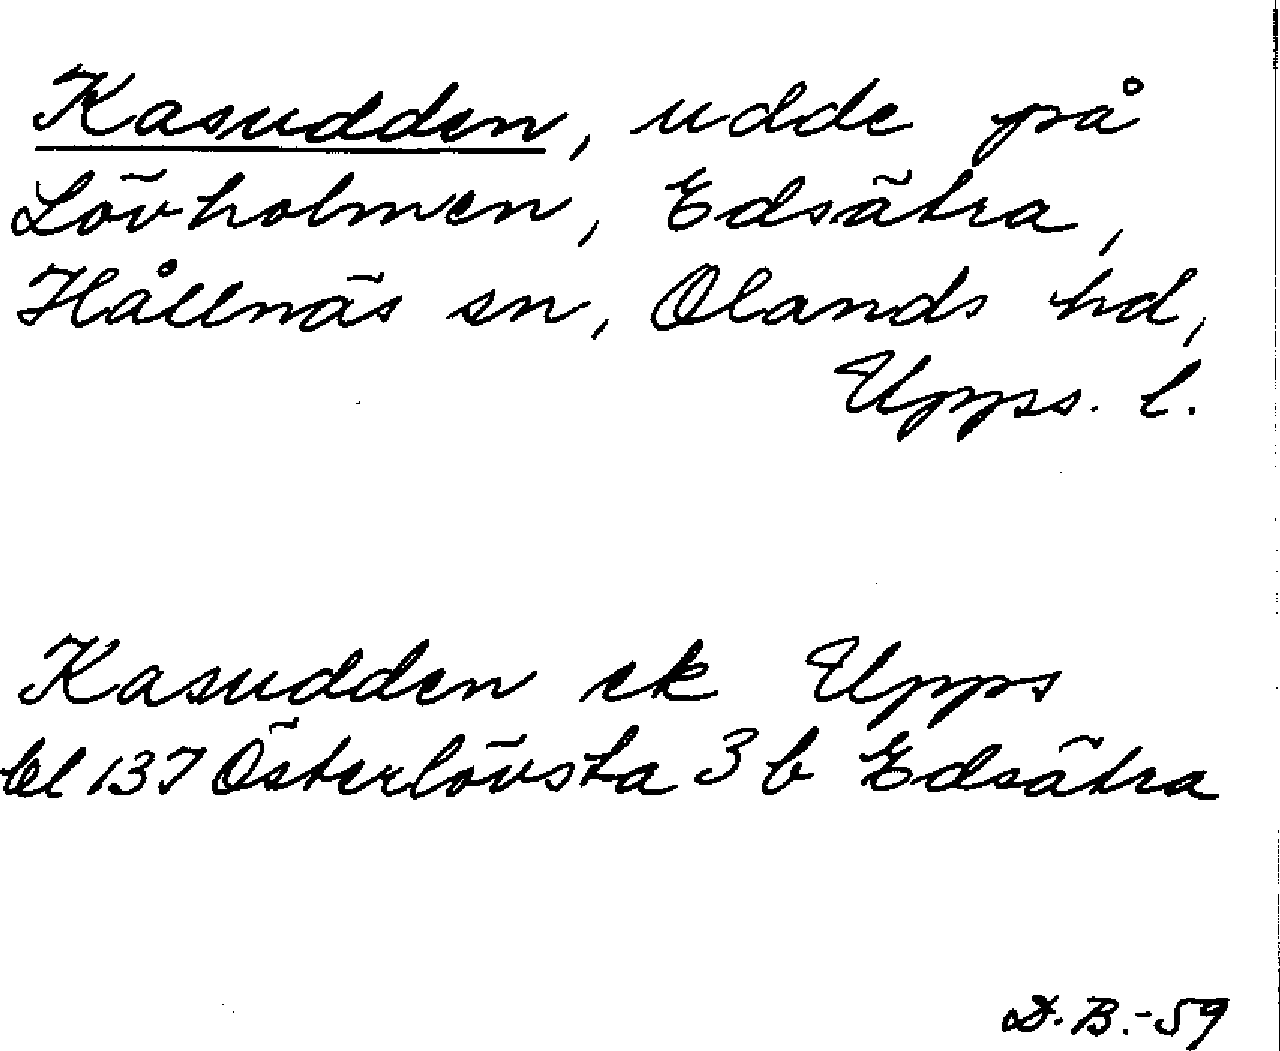 Kasudden, udde på
Lövholmen, Edsätra,
Hållnäs sn, Olands hd,
Upps. l.
Kasudden ek Upps
bl 137 Österlövsta 3 b Edsätra
D.B.-59